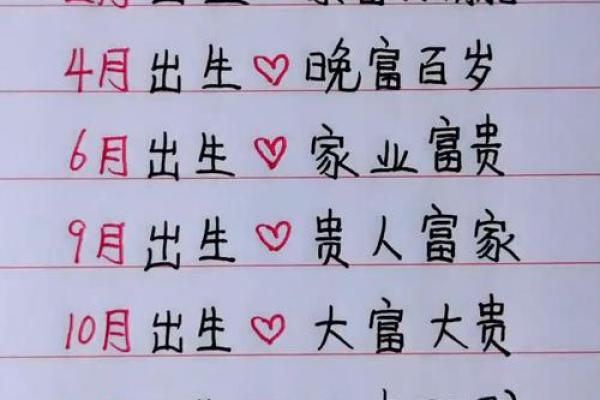 4月出生♡晚富百岁
6月出生♡家业富贵
9月出生♡贵人富家
10月出生♡大富大贵